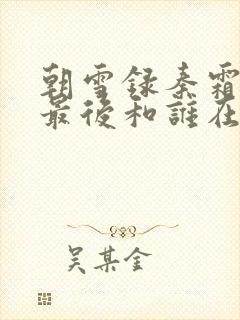 朝雪録秦霜
最後和誰在
吳某金